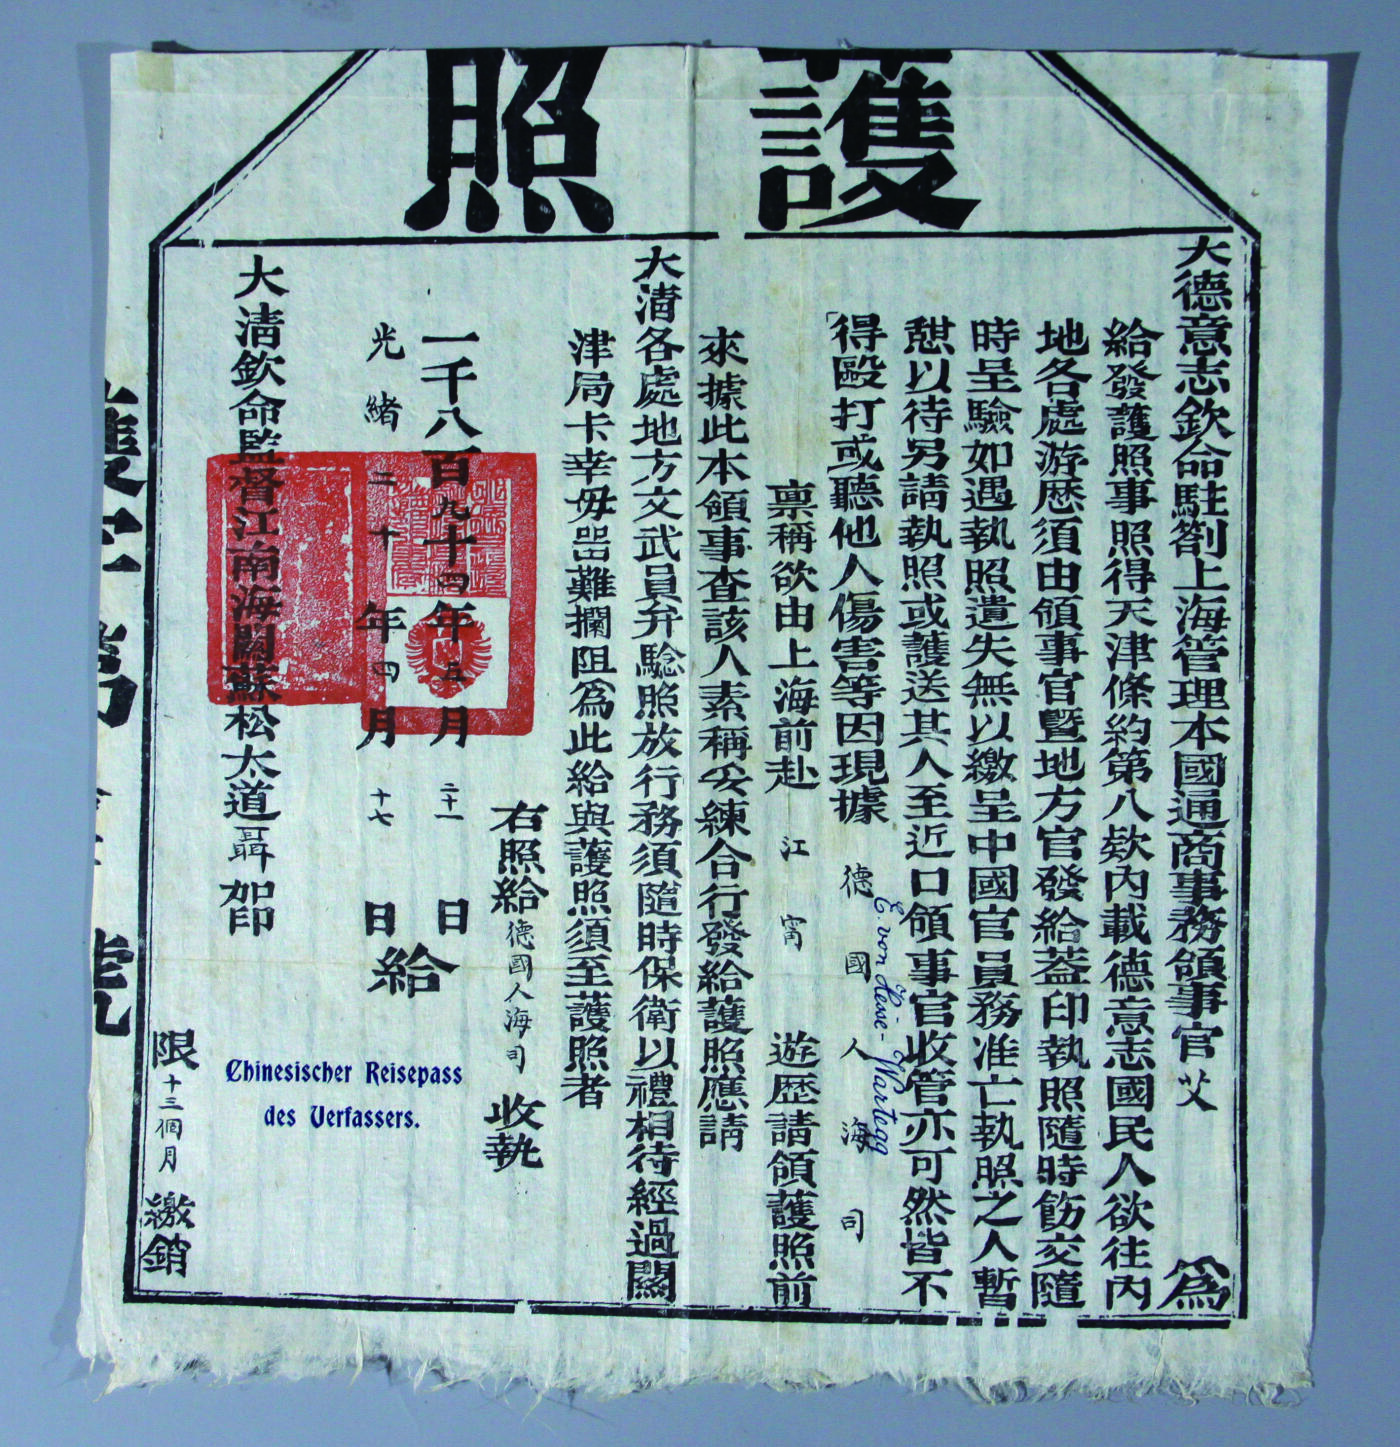 護照
大德意志欽命駐劄上海管理本國通商事務領事官艾 為
給發護照事照得天津條約第八欵內載德意志國民人欲往內
地各處游歷須由領事官暨地方官發給蓋印執照隨時飭交隨
時呈驗如遇執照遺失無以繳呈中國官員務准亡執照之人暫
憇以待另請執照或護送其人至近口領事官收管亦可然皆不
得毆打或聽他人傷害等因現據 德國人海司
E. von Hesse-Wartegg
禀稱欲由上海前赴 江甯 遊歷請領護照前
來據此本領事查該人素稱妥練合行發給護照應請
大清各處地方文武員弁驗照放行務須隨時保衛以禮相待經過關
津局卡幸毋留難攔阻為此給與護照須至護照者
右照給德國人海司收執
一千八百九十四年五月二十一日
給
光緒二十年四月十七日
大清欽命監督江南海關蘇松太道聶 加印
Chinesischer Reisepass
des Verfassers.
限十三個月繳銷
護字第 號